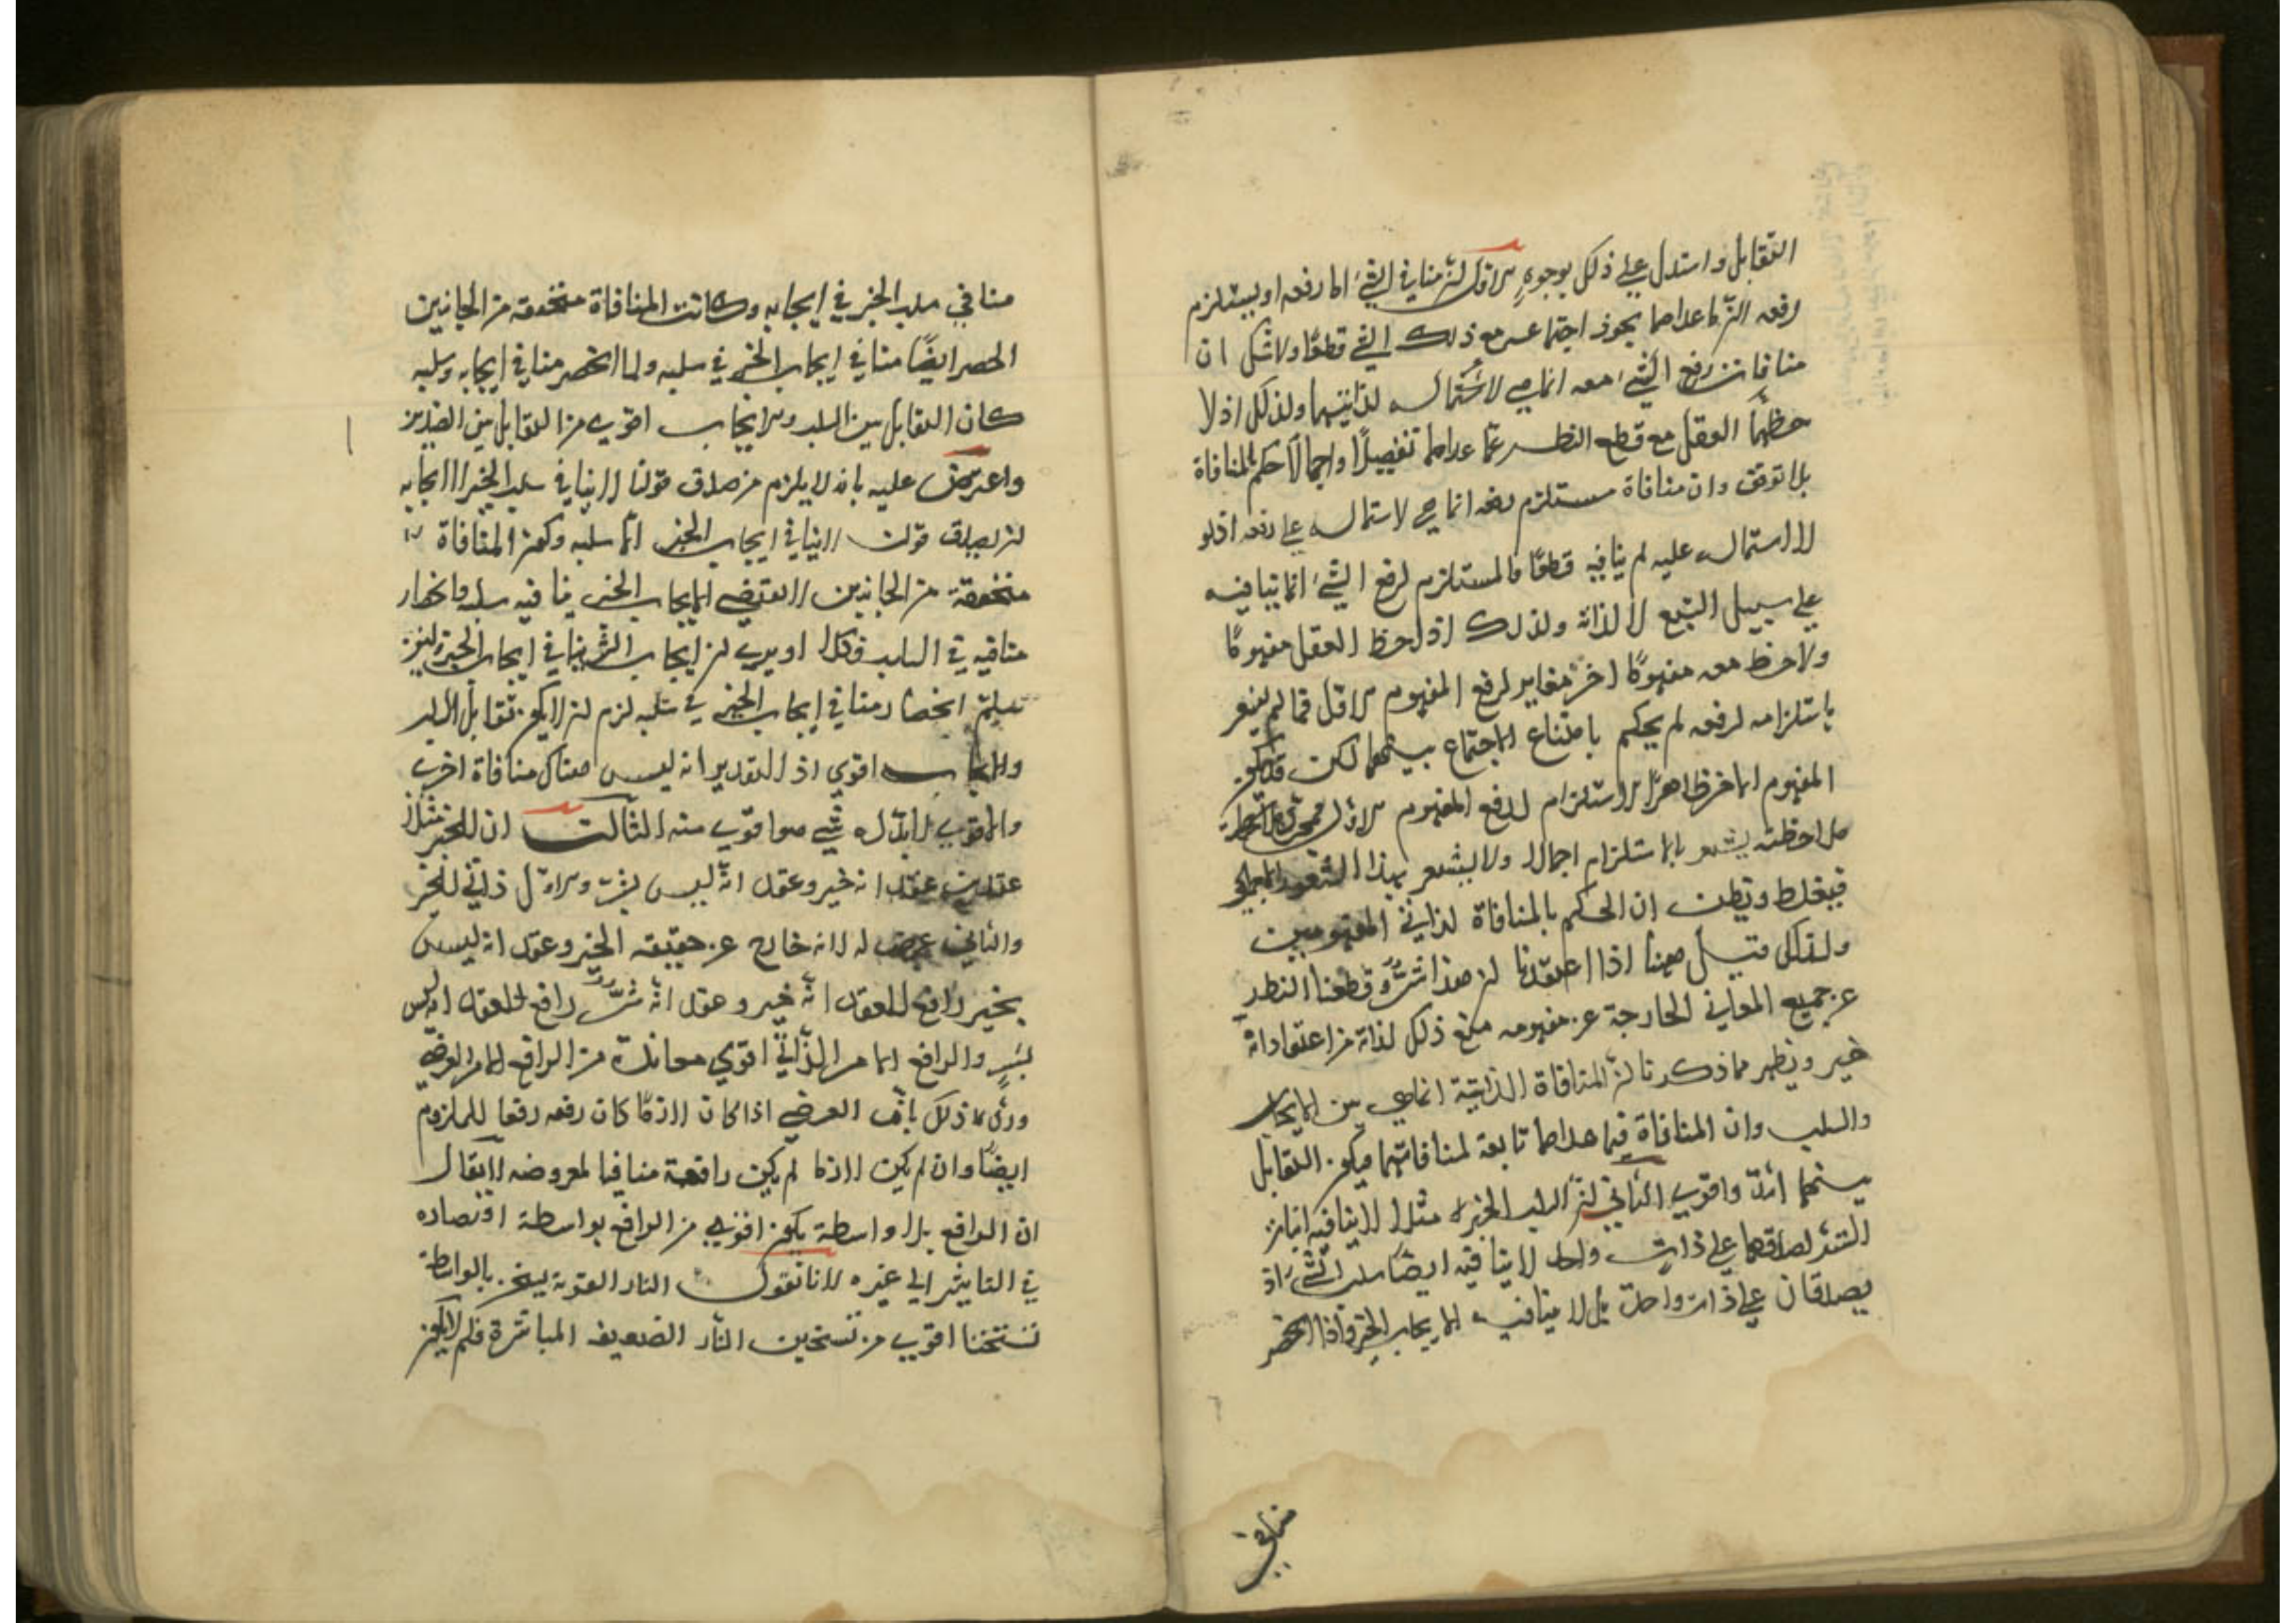 التقابل واستدل على ذلك بوجوه الاول ان منافي الشيء اما رفعه او يستلزم
رفعه لان ما عداهما يجوز اجتماعه مع ذلك الشيء قطعا ولا شك ان
منافات رفع الشيء معه انما هي لاشتماله لذاتيهما ولذلك اذا لا
حظهما العقل مع قطع النظر عما عداهما تفصيلا واجمالا حكم بالمنافاة
بلا توقف وان منافاة مستلزم رفعه انما هي لاشتماله على رفعه اذ لو
لا اشتماله عليه لم ينافيه قطعا فالمستلزم لرفع الشيء انما ينافيه
على سبيل التبع لا لذاته ولذلك اذا لاحظ العقل مفهوما
ولاحظ معه مفهوما اخر مغاير لرفع المفهوم الاول فما لم يشعر
باستلزامه لرفعه لم يحكم بامتناع الاجتماع بينهما لكن قد يكون
المفهوم الاخر ظاهر الاستلزام لرفع المفهوم الاول
ملاحظته يشعر بالاستلزام اجمالا ولا يشعر بهذا الشعور
فيغلط ويظن ان الحكم بالمنافاة لذاتي المفهومين
ولذلك قيل ههنا اذا اعتقدنا ان هذا شر وقطعنا النظر
عن جميع المعاني الخارجة عن مفهومه منع ذلك لذاته من اعتقاد انه
خير ويظهر مما ذكرنا ان المنافاة الذاتية انما هي بين الايجاب
والسلب وان المنافاة فيما عداهما تابعة لمنافاتهما فيكون التقابل
بينهما اشد واقوي الثاني ان السلب الخير مثلا لا ينافيه ايجاب
الشر لصدقهما على ذات واحد لا ينافيه ايضا سلب الشيء اذ
يصدقان على ذات واحدة بل لا ينافيه الا ايجاب الخير واذا انحصر
منافي
منافي سلب الخير في ايجابه وكانت المنافاة متحققة من الجانبين
انحصر ايضا منافي ايجاب الخير في سلبه ولما انحصر منافي ايجابه وسلبه
كان التقابل بين السلب والايجاب اقوي من التقابل بين الضدين
واعترض عليه بانه لا يلزم من صدق قولنا لا ينافي سلب الخير الا ايجابه
ان يصدق قولنا لا ينافي ايجاب الخير الا سلبه وكون المنافاة
متحققة من الجانبين لا يقتضي الا ايجاب الخير ينافيه سلبه وانحصار
منافيه في السلب فكلا او يرى ان ايجاب الشر ينافي ايجاب الخير
تسليم انحصار منافي ايجاب الخير في سلبه لزم ان لا يكون تقابل السلب
والايجاب اقوي اذ التقدير انه ليس هناك منافاة اخرى
والاقوي لا بد له شيء هو اقوى منه الثالث ان للخير مثلا
عقدين عقد انه خير وعقد انه ليس بشر والاول ذاتي للخير
والثاني عرضي له لانه خارج عن حقيقه الخير وعقد انه ليس
بخير رافع للعقد انه خير وعقد انه شر رافع للعقد انه ليس
بشر والرافع الامر الذاتي اقوي معاندة من الرافع الامر العرضي
وردى ذلك بان العرضي اذا كان لازما كان رفعه رفعا للملزوم
ايضا وان لم يكن لازما لم يكن رافعه منافيا لمعروضه لا يقال
ان الرافع بلا واسطة يكون اقوى من الرافع بواسطة اقتصاده
في التاثير الى غيره لانا نقول النار القوية يسخن بالواسطة
تسخنا اقوي من تسخين النار الضعيف المباشرة فلم لا يكون